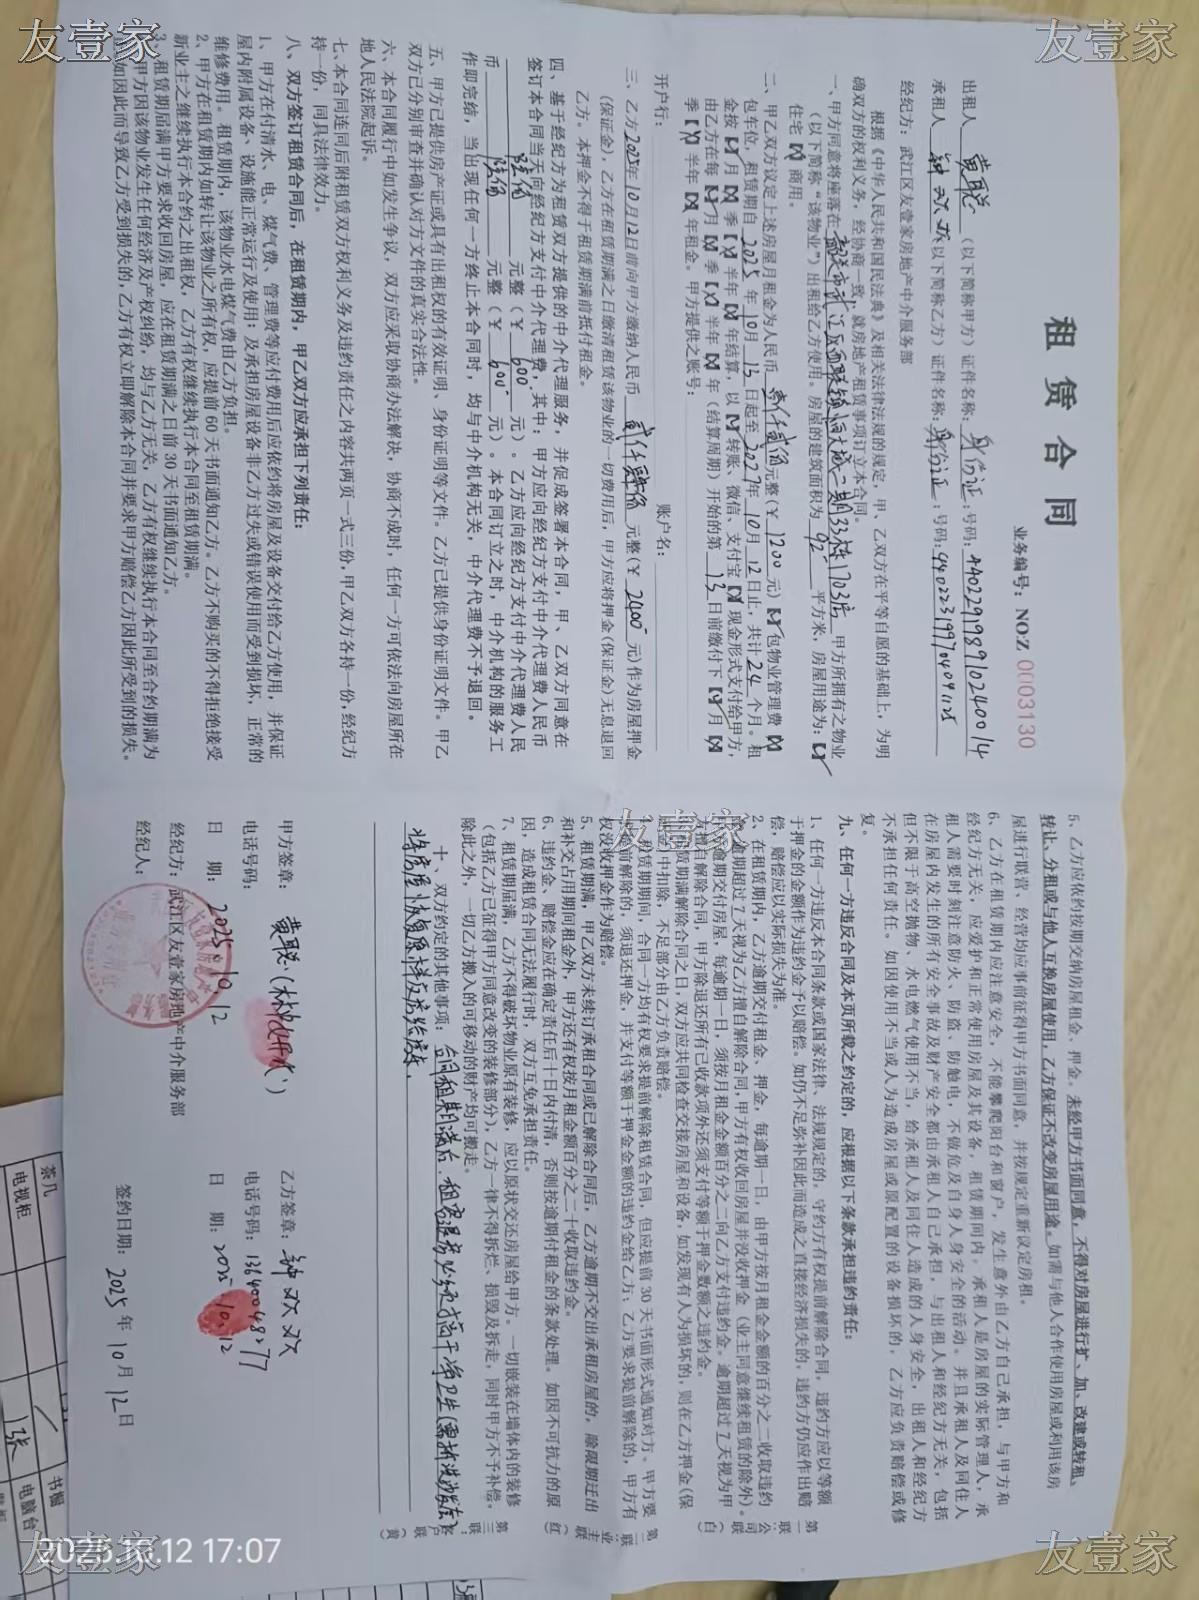 租赁合同
业务编号：NO:Z 0003130
出租人 黄聪 （以下简称甲方）证件名称：身份证：号码：440229198910240014
承租人 钟欢欢（以下简称乙方）证件名称：身份证：号码：440223199704091125
经纪方：武江区友壹家房地产中介服务部
根据《中华人民共和国民法典》及相关法律法规的规定，甲、乙双方在平等自愿的基础上，为明
确双方的权利义务，经协商一致，就房地产租赁事项订立本合同。
一、甲方同意将座落在 韶关市武江区西联镇恒大城二期33栋1703房 甲方所拥有之物业
（以下简称“该物业”）出租给乙方使用。房屋的建筑面积为 92 平方米，房屋用途为：【✓】
住宅【×】商用。
二、甲乙双方议定上述房屋月租金为人民币 壹仟贰佰 元整（￥ 1200 元）【×】包物业管理费【×】
包车位，租赁期自 2025 年 10 月 13 日起至 2027 年 10 月 12 日止，共计 24 个月。租
金按【✓】月【×】季【×】半年【×】年结算，以【✓】转账、微信、支付宝【×】现金形式支付给甲方，
由乙方在每【✓】月【×】季【×】半年【×】年（结算周期）开始的第 13 日前缴付下【✓】月【×】
季【×】半年【×】年租金。甲方提供之账号：
开户行： 账户名：
三、乙方 2025年10月12日前向甲方缴纳人民币 贰仟肆佰 元整（￥ 2400 元）作为房屋押金
（保证金），乙方在租赁期满之日缴清租赁该物业的一切费用后，甲方应将押金（保证金）无息退回
乙方。本押金不得于租赁期满前抵付租金。
四、基于经纪方为租赁双方提供的中介代理服务，并促成签署本合同，甲、乙双方同意在
签订本合同当天向经纪方支付中介代理费，其中：甲方应向经纪方支付中介代理费人民币
陆佰 元整（￥ 600 元）。乙方应向经纪方支付中介代理费人民
币 陆佰 元整（￥ 600 元）。本合同订立之时，中介机构的服务工
作即完结，当出现任何一方终止本合同时，均与中介机构无关，中介代理费不予退回。
五、甲方已提供房产证或具有出租权的有效证明、身份证明等文件。乙方已提供身份证明文件。甲乙
双方已分别审查并确认对方文件的真实合法性。
六、本合同履行中如发生争议，双方应采取协商办法解决，协商不成时，任何一方可依法向房屋所在
地人民法院起诉。
七、本合同连同后附租赁双方权利义务及违约责任之内容共两页一式三份，甲乙双方各持一份，经纪方
持一份，同具法律效力。
八、双方签订租赁合同后，在租赁期内，甲乙双方应承担下列责任：
1、甲方在付清水、电、煤气费、管理费等应付费用后应依约将房屋及设备交付给乙方使用，并保证
屋内附属设备、设施能正常运行及使用；及承担房屋设备非乙方过失或错误使用而受到损坏，正常的
维修费用。租赁期内，该物业水电煤气费由乙方负担。
2、甲方在租赁期内如转让该物业之所有权，应提前60天书面通知乙方。乙方不购买的不得拒绝接受
新业主之继续执行本合约之出租权，乙方有权继续执行本合同至租赁期满。
3、租赁期届满甲方要求收回房屋，应在租赁期满之日前30天书面通知乙方。
甲方因该物业发生任何经济及产权纠纷，均与乙方无关，乙方有权继续执行本合同至合约期满为
如因此而导致乙方受到损失的，乙方有权立即解除本合同并要求甲方赔偿乙方因此所受到的损失。
5、乙方应依约按期交纳房屋租金、押金。未经甲方书面同意，不得对房屋进行扩、加、改建或转租、
转让、分租或与他人互换房屋使用，乙方保证不改变房屋用途。如需与他人合作使用房屋或利用该房
屋进行联营、经营均应事前征得甲方书面同意，并按规定重新议定房租。
6、乙方在租赁期内应注意安全，不能攀爬阳台和窗户，发生意外由乙方自己承担，与甲方和
经纪方无关，应爱护和正常使用房屋及其设备，租赁期间内。承租人是房屋的实际管理人，承
租人需要时刻注意防火、防盗、防触电，不做危及自身人身安全的活动。并且承租人及同住人
在房屋内发生的所有安全事故及财产安全都由承租人自己承担，与出租人和经纪方无关，包括
但不限于高空抛物、水电燃气使用不当，给承租人及同住人造成的人身安全，出租人和经纪方
不承担任何责任。如因使用不当或人为造成房屋或原配置的设备损坏的，乙方应负责赔偿或修
复。
九、任何一方违反合同及本页所载之约定的，应根据以下条款承担违约责任：
1、任何一方违反本合同条款或国家法律、法规规定的，守约方有权提前解除合同，违约方应以等额
于押金的金额作为违约金予以赔偿。如仍不足弥补因此而造成之直接经济损失的，违约方仍应作出赔
偿；赔偿应以实际损失为准。
2、在租赁期内，乙方逾期交付租金、押金，每逾期一日，由甲方按月租金金额的百分之二收取违约
逾期超过7天视为乙方擅自解除合同，甲方有权收回房屋并没收押金（业主同意继续租赁的除外）。
逾期交付房屋，每逾期一日，须按月租金金额百分之二向乙方支付违约金。逾期超过7天视为甲
方擅自解除合同，甲方除退还所有已收款项外还须支付等额于押金数额之违约金。
租赁期满解除合同之日，双方应共同检查交接房屋和设备，如发现有人为损坏的，则在乙方押金（保
中扣除，不足部分由乙方负责赔偿。
租赁期期间，合同一方均有权要求提前解除租赁合同，但应提前30天书面形式通知对方。甲方要
提前解除的，须退还押金，并支付等额于押金金额的违约金给乙方；乙方要求提前解除的，甲方有
权没收押金作为赔偿。
5、租赁期满，甲乙双方未续订承租合同或已解除合同后，乙方逾期不交出承租房屋的，除限期迁出
和补交占用期间租金外，甲方还有权按月租金额百分之二十收取违约金。
6、违约金、赔偿金应在确定责任后十日内付清，否则按逾期付租金的条款处理。如因不可抗力的原
因，造成租赁合同无法履行时，双方互免承担责任。
7、租赁期届满，乙方不得破坏物业原有装修，应以原状交还房屋给甲方。一切嵌装在墙体内的装修
（包括乙方已征得甲方同意改变的装修部分），乙方一律不得拆烂、损毁及拆走，同时甲方不予补偿。
除此之外，一切乙方搬入的可移动的财产均可搬走。
十、双方约定的其他事项： 合同租期满后，租客退房必须搞干净卫生（需拆洗
将房屋恢复原样
第一联 公司联（白）
第二联 业主联（红）
第三联 客户联（黄）
甲方签章： 黄聪
电话号码：
日 期： 2025.10.12
经纪方：武江区友壹家房地产中介服务部
经纪人：
乙方签章：钟欢欢
电话号码：13640048277
日 期：2025.10.12
签约日期： 2025 年 10 月 12 日
茶几
电视柜
1张
书橱
电脑台
友壹家
友壹家
友壹家
友壹家
友壹家
2025.10.12 17:07